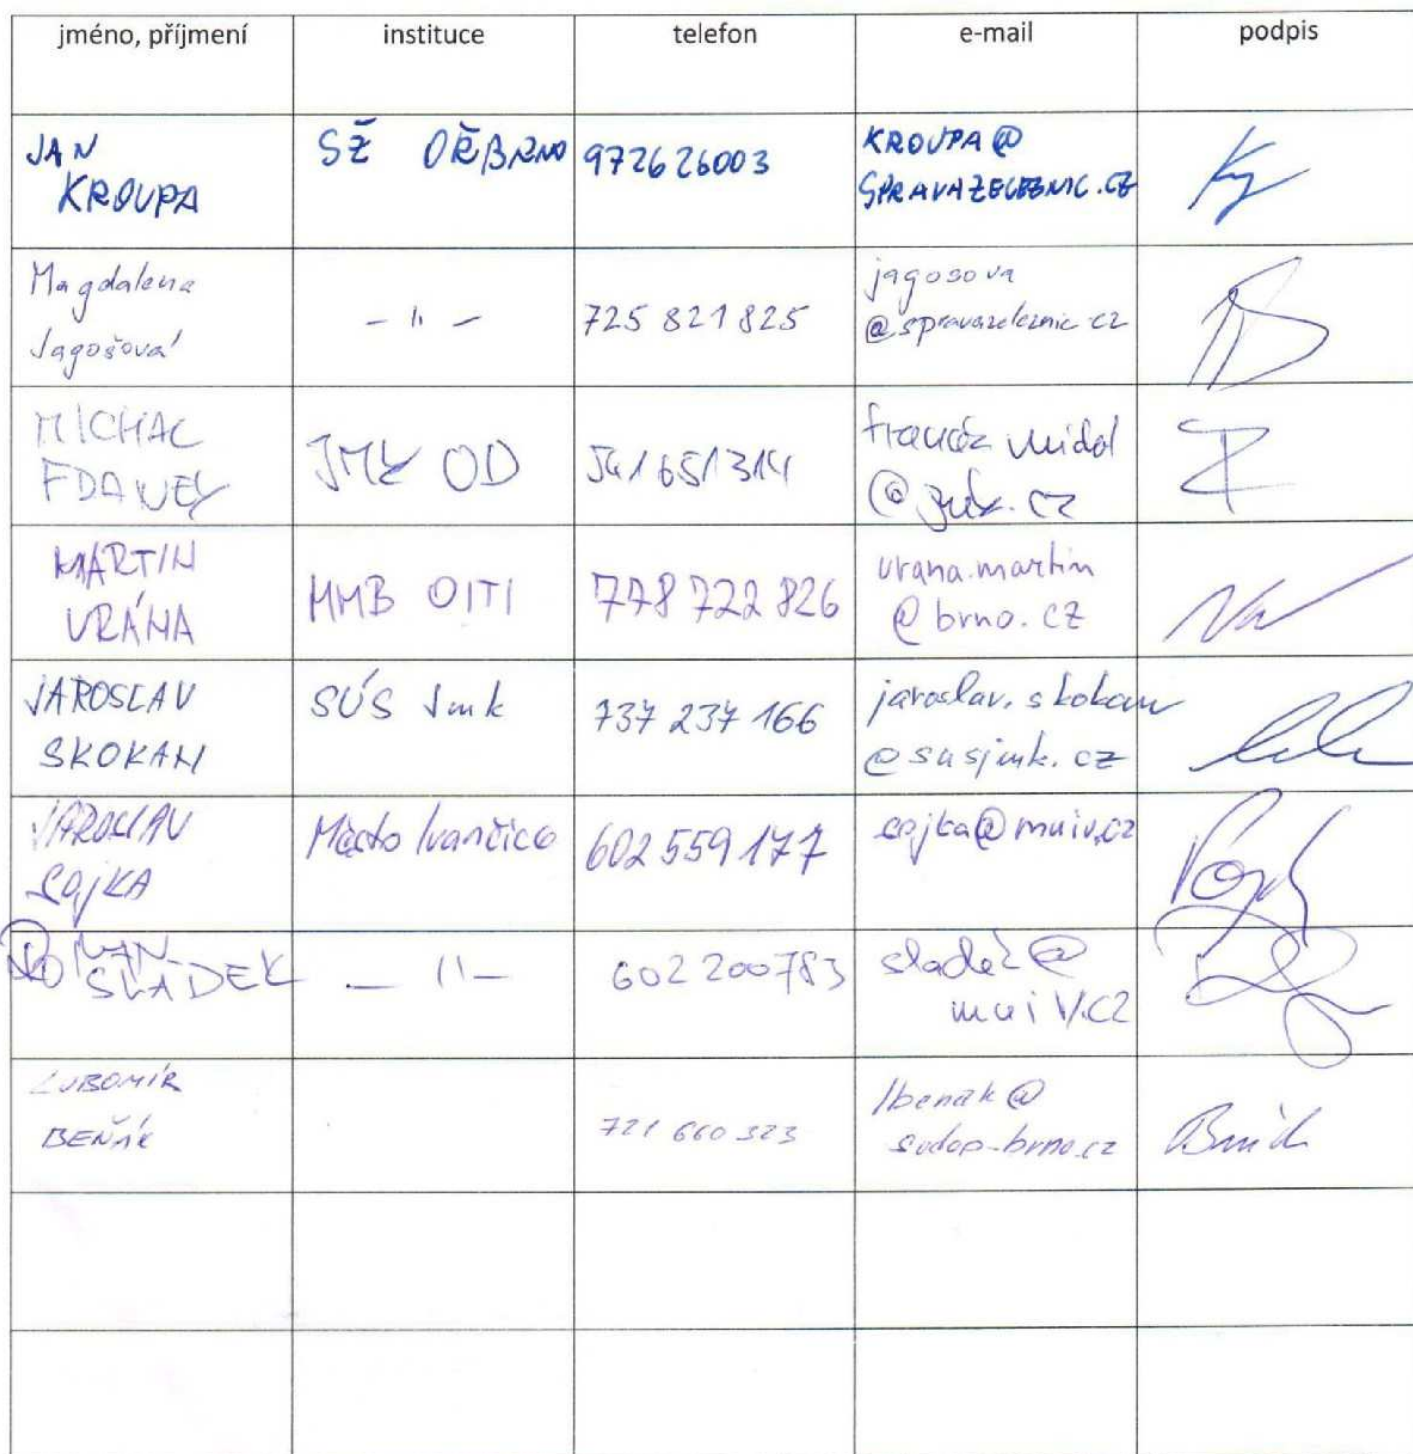 jméno, příjmení instituce telefon e-mail podpis
JAN
KROUPA
SŽ OŘ BRNO
972626003
KROUPA@
SPRAVAZELEZNIC.CZ
Magdalena
Jagošová
- 11 -
725 821 825
jagosova
@spravazeleznic.cz
MICHAL
JMK OD
541651314
MARTIN
VRÁNA
MMB OITI
778 722 826
vrana.martin
@brno.cz
JAROSLAV
SKOKAN
SÚS Jmk
737 237 166
jaroslav.skokan
@susjmk.cz
JAROSLAV
SOJKA
Město Ivančice
602 559 177
sojka@muiv.cz
ROMAN
SLADEK
- 11 -
602 200783
sladek@
muiv.cz
LUBOMÍR
BEŇÁK
721 660 323
lbenak@
sudop-brno.cz